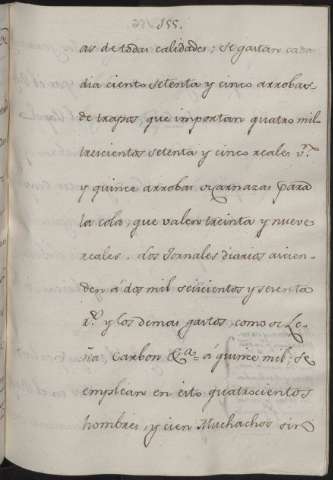 155.
as de todas calidades; se gastan cada
dia ciento setenta y cinco arrobas
de trapos que importan quatro mil
trescientos setenta y cinco reales v.ⁿ
y quince arrobas de carnaza para
la cola, que valen treinta y nueve
reales. Los Jornales diarios ascien-
den á dos mil seiscientos y
r.ˢ y los demas gastos, como de Le-
ña Carbon &.ᵃ á quince mil: se
emplean en esto quatrocientos
hombres, y cien Muchachos sin